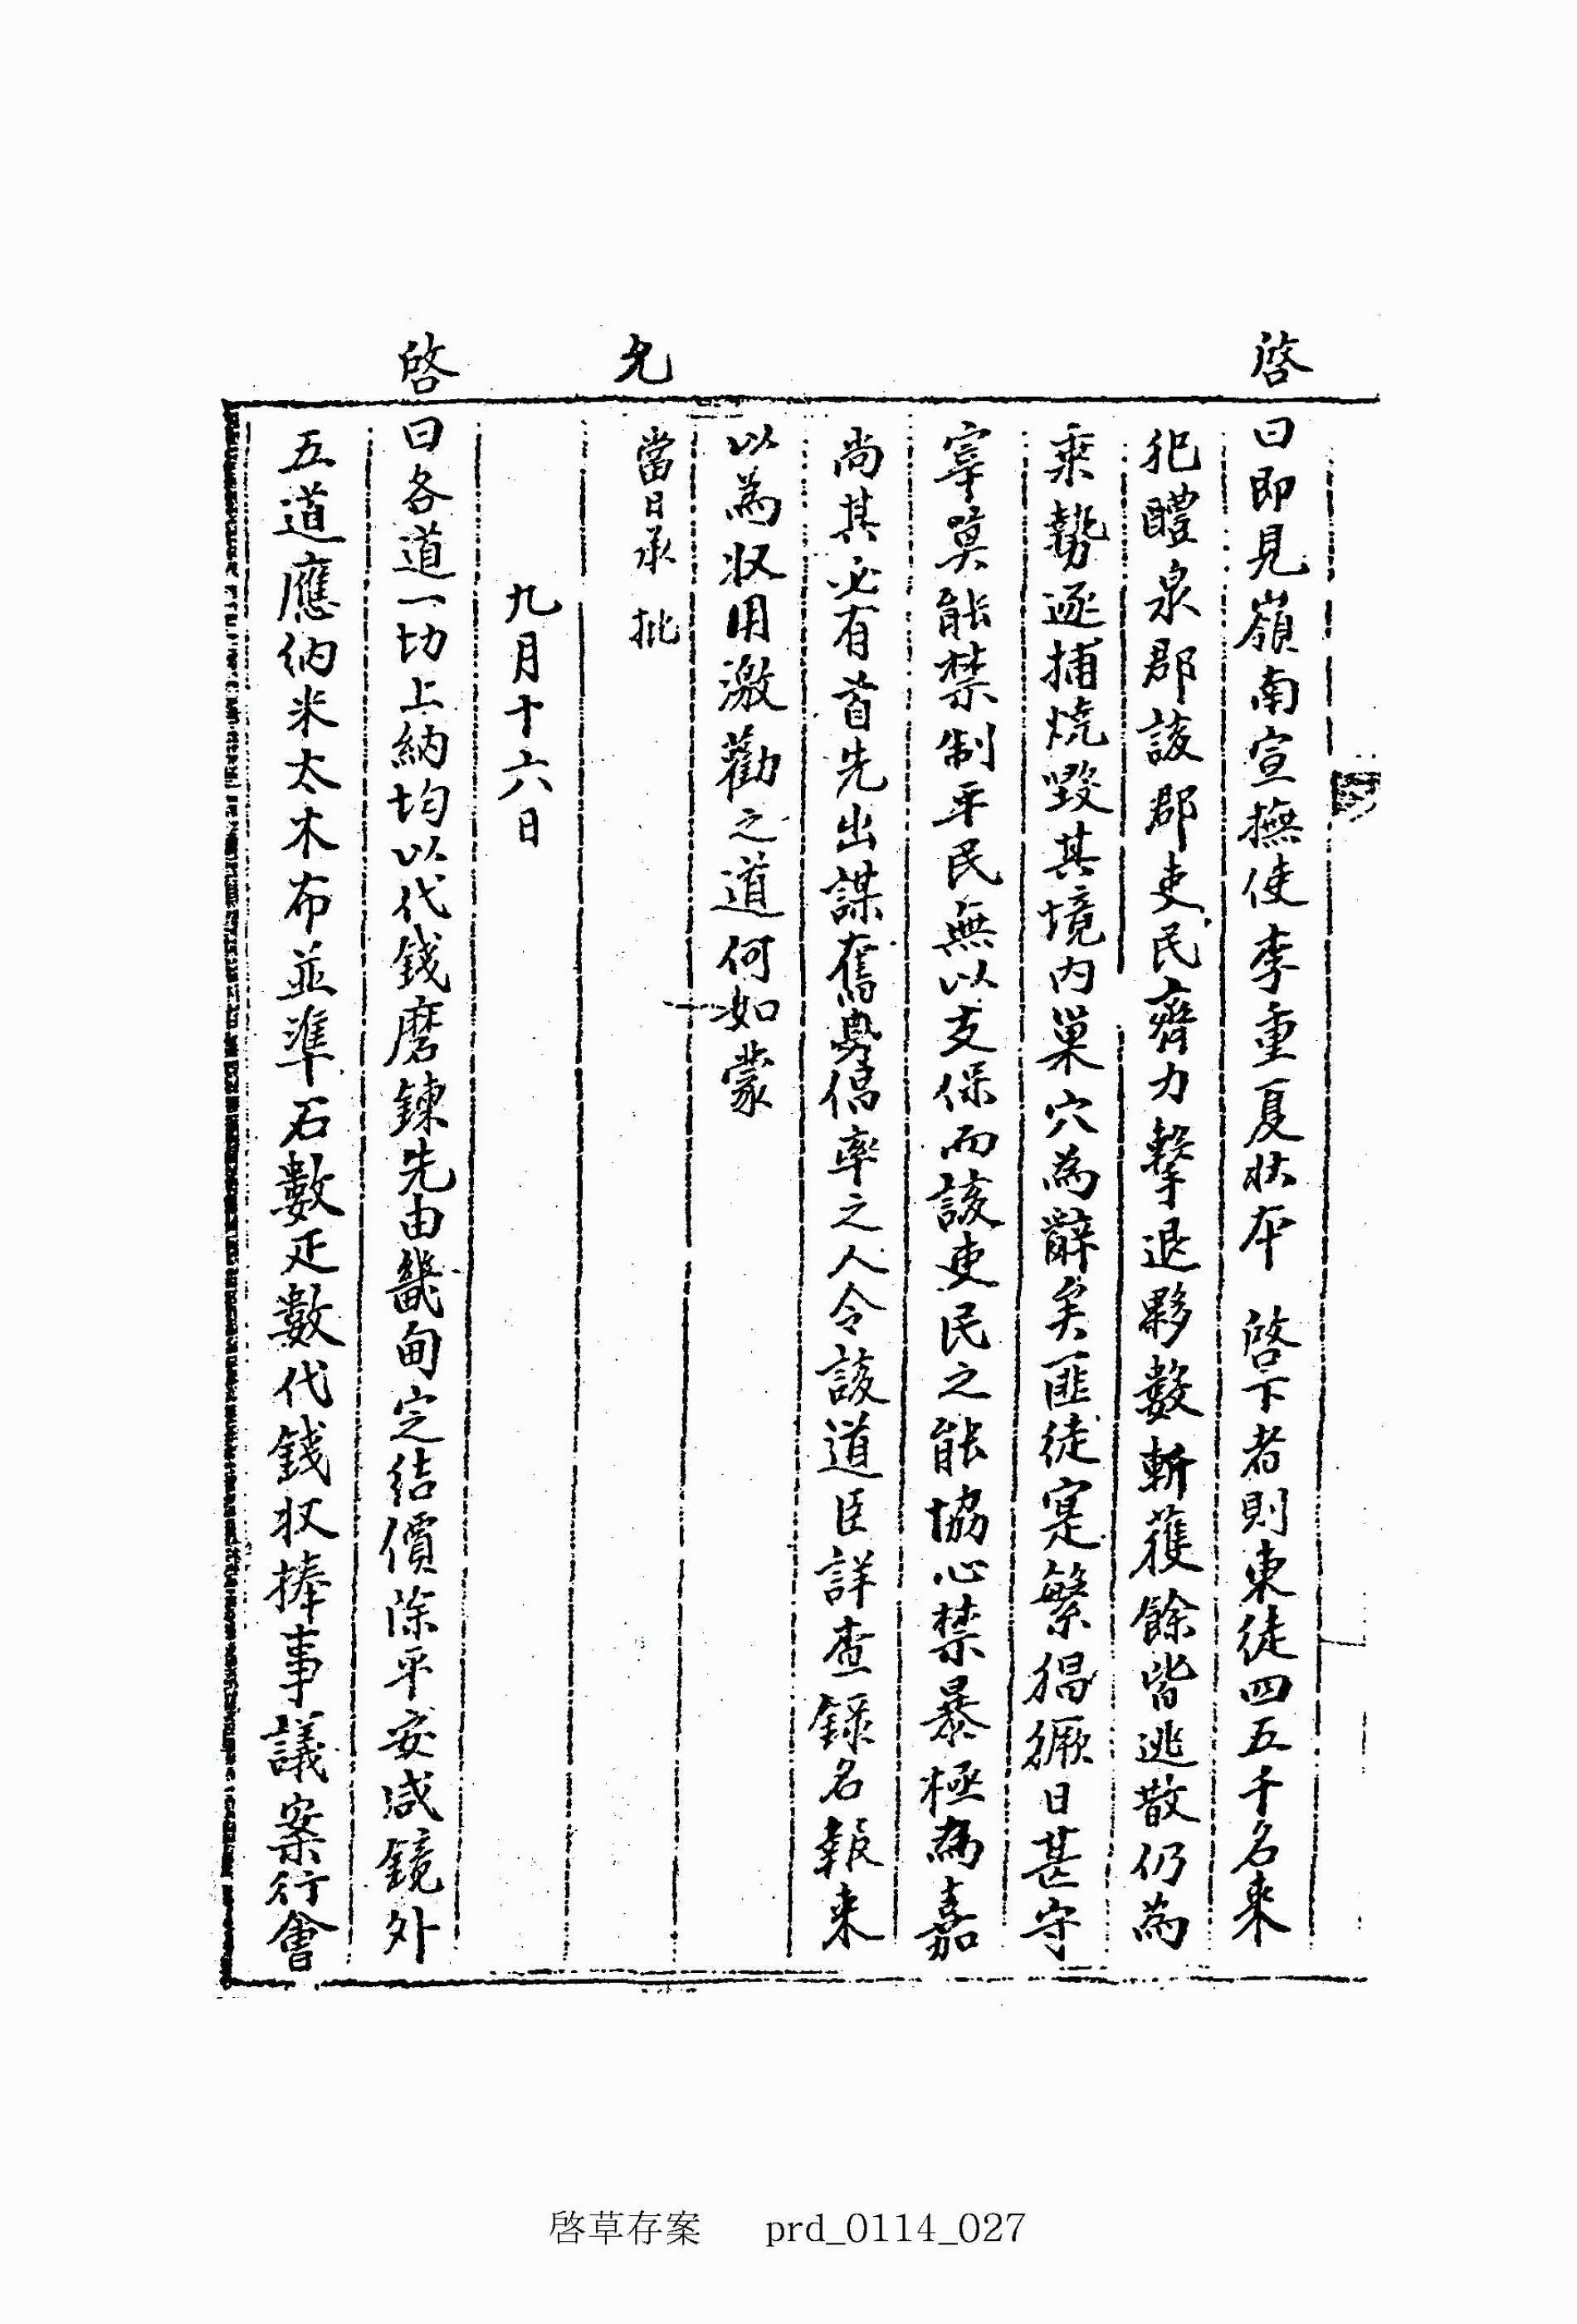 啓曰即見嶺南宣撫使李重夏狀本 啓下者則東徒四五千名來
犯醴泉郡該郡吏民齊力擊退夥數斬獲餘皆逃散仍爲
乘勢逐捕燒毀其境內巢穴爲辭矣匪徒寔繁猖獗日甚守
宰莫能禁制平民無以支保而該吏民之能協心禁暴極爲嘉
尚其必有首先出謀奮舉倡率之人令該道臣詳查錄名報來
以爲收用激勸之道何如蒙
允
當日承 批
九月十六日
啓曰各道一切上納均以代錢磨鍊先由畿甸定結價除平安咸鏡外
五道應納米太木布並準石數疋數代錢收捧事議案行會
啓草存案 prd_0114_027